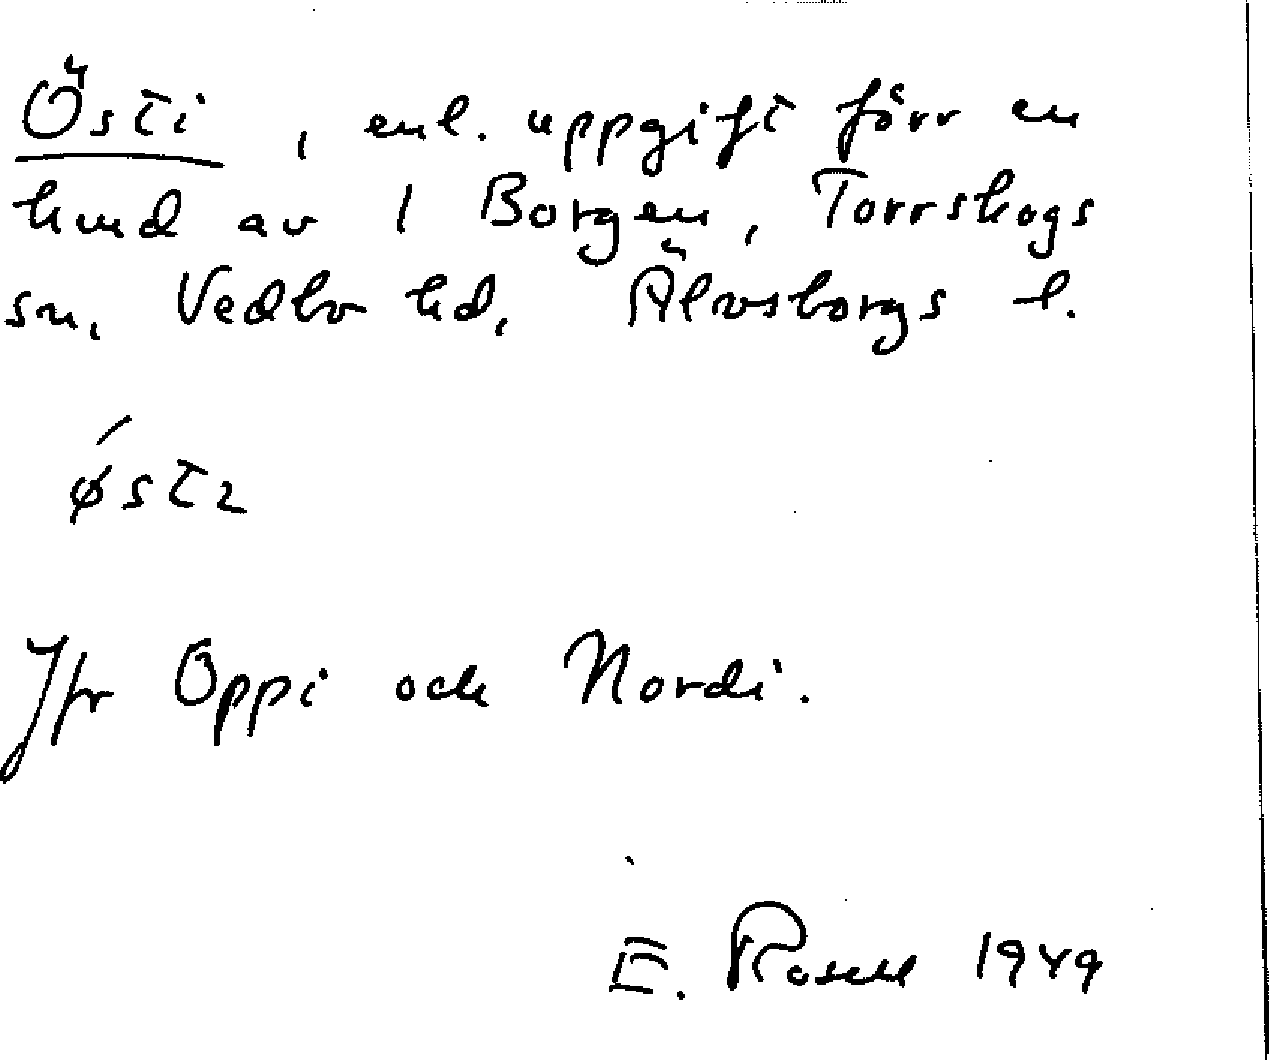 Östi, enl. uppgift förr en
hmd av 1 Borgen, Torrskogs
sn, Vedbo hd, Älvsborgs l.
østɩ
Jfr Oppi och Nordi.
E. Rosell 1949